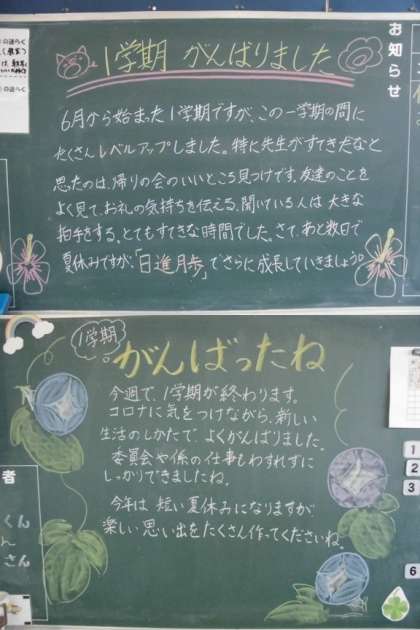 1学期 がんばりました
お知らせ
6月から始まった1学期ですが、この一学期の間に
たくさんレベルアップしました。特に先生がすてきだなと
思ったのは、帰りの会のいいところ見つけです。友達のことを
よく見て、お礼の気持ちを伝える、聞いている人は大きな
拍手をする。とてもすてきな時間でした。さて、あと数日で
夏休みですが、「日進月歩」でさらに成長していきましょう。
1学期
がんばったね
今週で、1学期が終わります。
コロナに気をつけながら、新しい
生活のしかたで、よくがんばりました。
委員会や係の仕事もわすれずに
しっかりできましたね。
今年は 短い夏休みになりますが、
楽しい思い出をたくさん作ってくださいね。
者
くん
さん
1
2
3
6